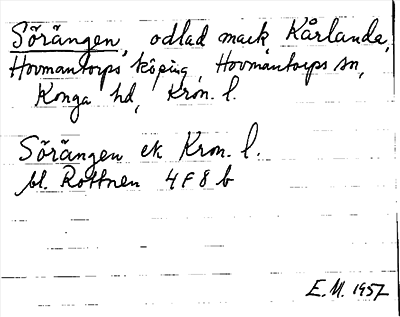 Sörängen, odlad mark, Kårlanda,
Hovmantorps köping, Hovmantorps sn,
Konga hd, Kron. l.
Sörängen ek Kron. l.
bl. Rottnen 4 F 8 b
E.M. 1957